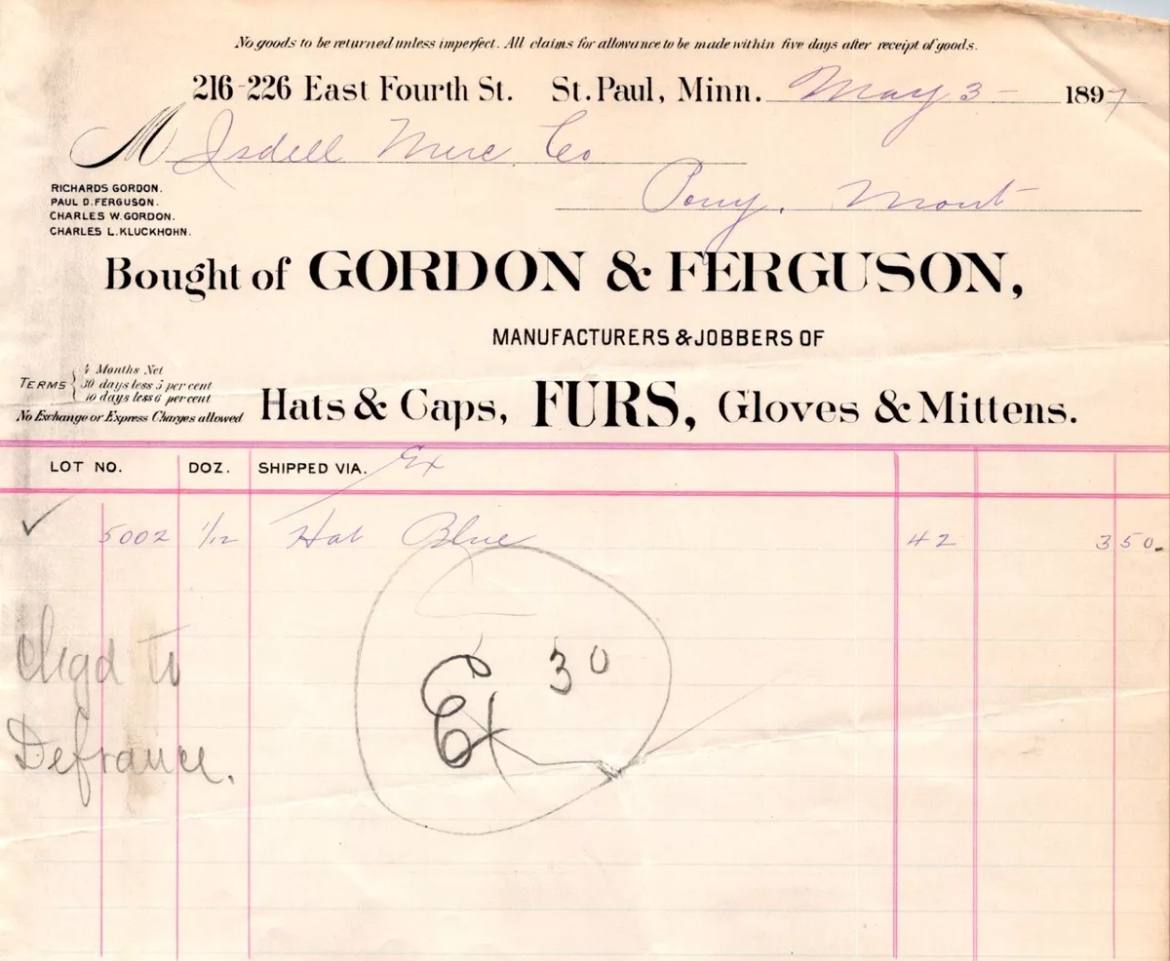 No goods to be returned unless imperfect. All claims for allowance to be made within five days after receipt of goods.
216-226 East Fourth St. St. Paul, Minn. May 3 - 1897
M Isdell Merc. Co
Pony, Mont
RICHARDS GORDON.
PAUL D. FERGUSON.
CHARLES W. GORDON.
CHARLES L. KLUCKHOHN.
Bought of GORDON & FERGUSON,
MANUFACTURERS & JOBBERS OF
TERMS
4 Months Net
30 days less 5 per cent
10 days less 6 per cent
No Exchange or Express Charges allowed
Hats & Caps, FURS, Gloves & Mittens.
LOT NO. DOZ. SHIPPED VIA. Ex
✓ 5002 1/12 Hat Blue 42 3 50
Chgd to
Defrance.
Ex 30